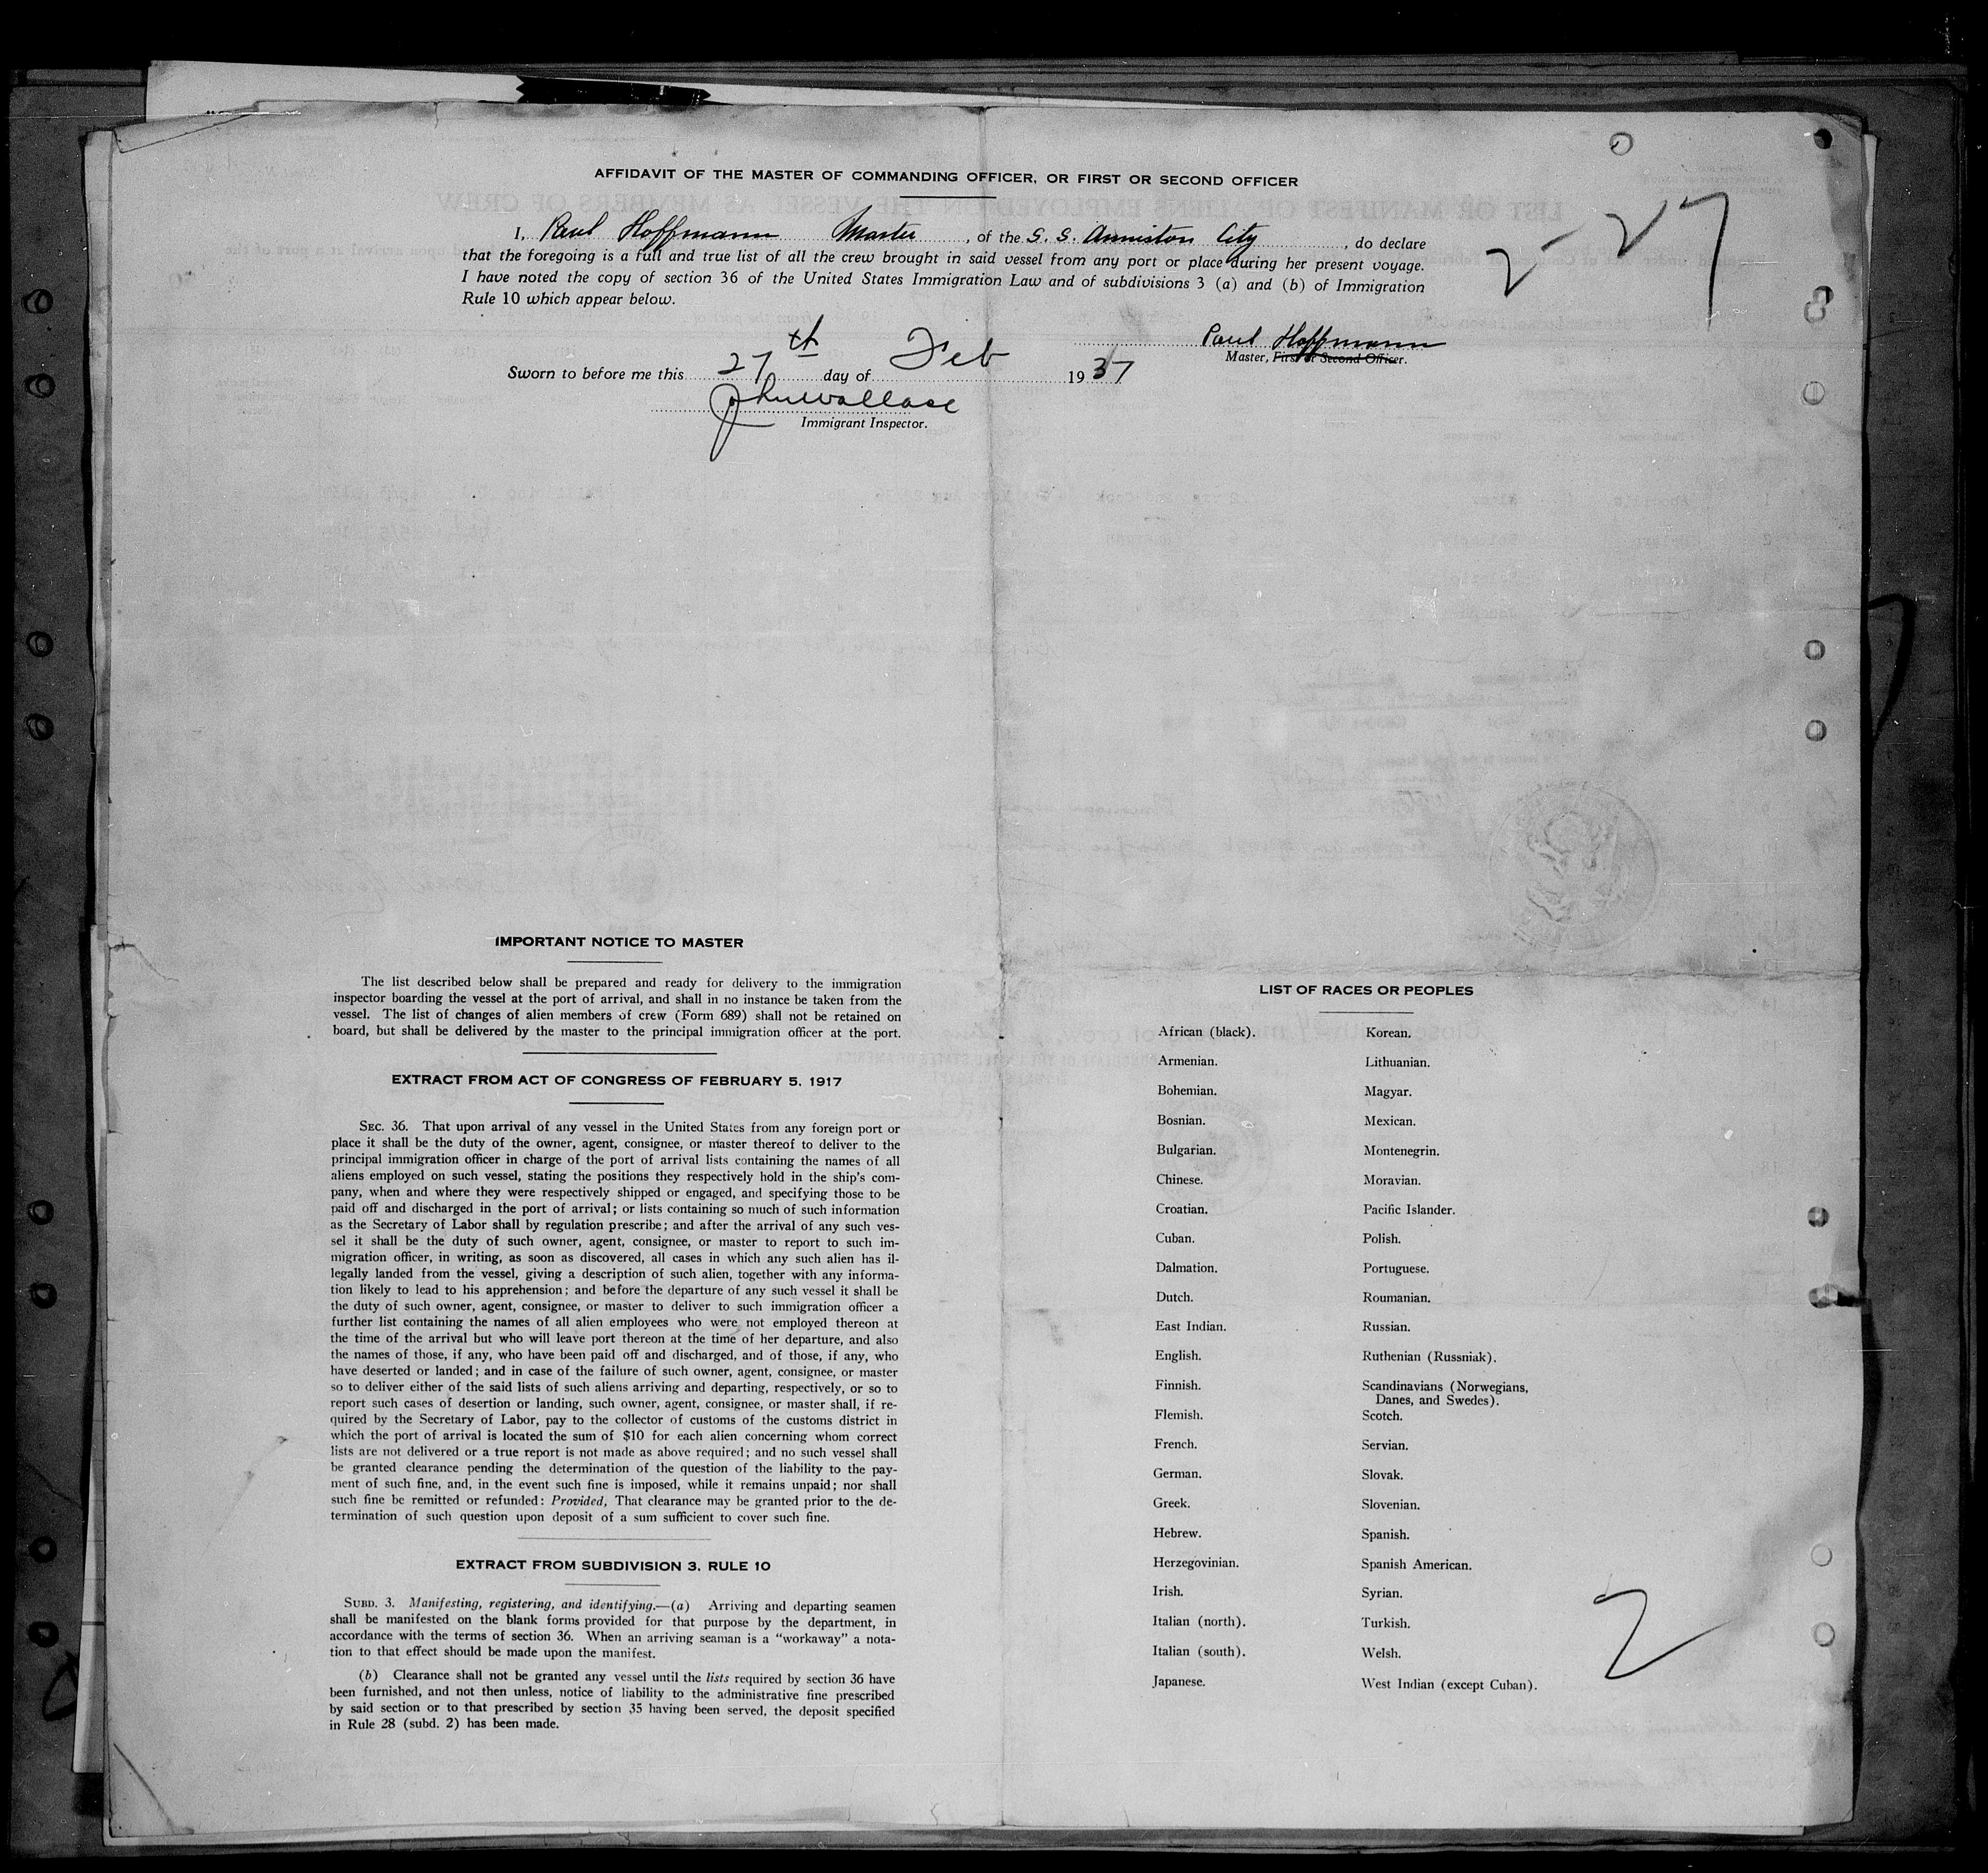 AFFIDAVIT OF THE MASTER OF COMMANDING OFFICER, OR FIRST OR SECOND OFFICER
I, Paul Hoffmann Master, of the S. S. Anniston City, do declare
that the foregoing is a full and true list of all the crew brought in said vessel from any port or place during her present voyage.
I have noted the copy of section 36 of the United States Immigration Law and of subdivisions 3 (a) and (b) of Immigration
Rule 10 which appear below.
2-27
Paul Hoffmann
Master, First or Second Officer.
Sworn to before me this 27th day of Feb 1937
Jno Wallace
Immigrant Inspector.
IMPORTANT NOTICE TO MASTER
The list described below shall be prepared and ready for delivery to the immigration
inspector boarding the vessel at the port of arrival, and shall in no instance be taken from the
vessel. The list of changes of alien members of crew (Form 689) shall not be retained on
board, but shall be delivered by the master to the principal immigration officer at the port.
EXTRACT FROM ACT OF CONGRESS OF FEBRUARY 5, 1917
SEC. 36. That upon arrival of any vessel in the United States from any foreign port or
place it shall be the duty of the owner, agent, consignee, or master thereof to deliver to the
principal immigration officer in charge of the port of arrival lists containing the names of all
aliens employed on such vessel, stating the positions they respectively hold in the ship's com-
pany, when and where they were respectively shipped or engaged, and specifying those to be
paid off and discharged in the port of arrival; or lists containing so much of such information
as the Secretary of Labor shall by regulation prescribe; and after the arrival of any such ves-
sel it shall be the duty of such owner, agent, consignee, or master to report to such im-
migration officer, in writing, as soon as discovered, all cases in which any such alien has il-
legally landed from the vessel, giving a description of such alien, together with any informa-
tion likely to lead to his apprehension; and before the departure of any such vessel it shall be
the duty of such owner, agent, consignee, or master to deliver to such immigration officer a
further list containing the names of all alien employees who were not employed thereon at
the time of the arrival but who will leave port thereon at the time of her departure, and also
the names of those, if any, who have been paid off and discharged, and of those, if any, who
have deserted or landed; and in case of the failure of such owner, agent, consignee, or master
so to deliver either of the said lists of such aliens arriving and departing, respectively, or so to
report such cases of desertion or landing, such owner, agent, consignee, or master shall, if re-
quired by the Secretary of Labor, pay to the collector of customs of the customs district in
which the port of arrival is located the sum of $10 for each alien concerning whom correct
lists are not delivered or a true report is not made as above required; and no such vessel shall
be granted clearance pending the determination of the question of the liability to the pay-
ment of such fine, and, in the event such fine is imposed, while it remains unpaid; nor shall
such fine be remitted or refunded: Provided, That clearance may be granted prior to the de-
termination of such question upon deposit of a sum sufficient to cover such fine.
EXTRACT FROM SUBDIVISION 3, RULE 10
SUBD. 3. Manifesting, registering, and identifying.—(a) Arriving and departing seamen
shall be manifested on the blank forms provided for that purpose by the department, in
accordance with the terms of section 36. When an arriving seaman is a "workaway" a nota-
tion to that effect should be made upon the manifest.
(b) Clearance shall not be granted any vessel until the lists required by section 36 have
been furnished, and not then unless, notice of liability to the administrative fine prescribed
by said section or to that prescribed by section 35 having been served, the deposit specified
in Rule 28 (subd. 2) has been made.
LIST OF RACES OR PEOPLES
African (black).
Armenian.
Bohemian.
Bosnian.
Bulgarian.
Chinese.
Croatian.
Cuban.
Dalmation.
Dutch.
East Indian.
English.
Finnish.
Flemish.
French.
German.
Greek.
Hebrew.
Herzegovinian.
Irish.
Italian (north).
Italian (south).
Japanese.
Korean.
Lithuanian.
Magyar.
Mexican.
Montenegrin.
Moravian.
Pacific Islander.
Polish.
Portuguese.
Roumanian.
Russian.
Ruthenian (Russniak).
Scandinavians (Norwegians,
Danes, and Swedes).
Scotch.
Servian.
Slovak.
Slovenian.
Spanish.
Spanish American.
Syrian.
Turkish.
Welsh.
West Indian (except Cuban).
2